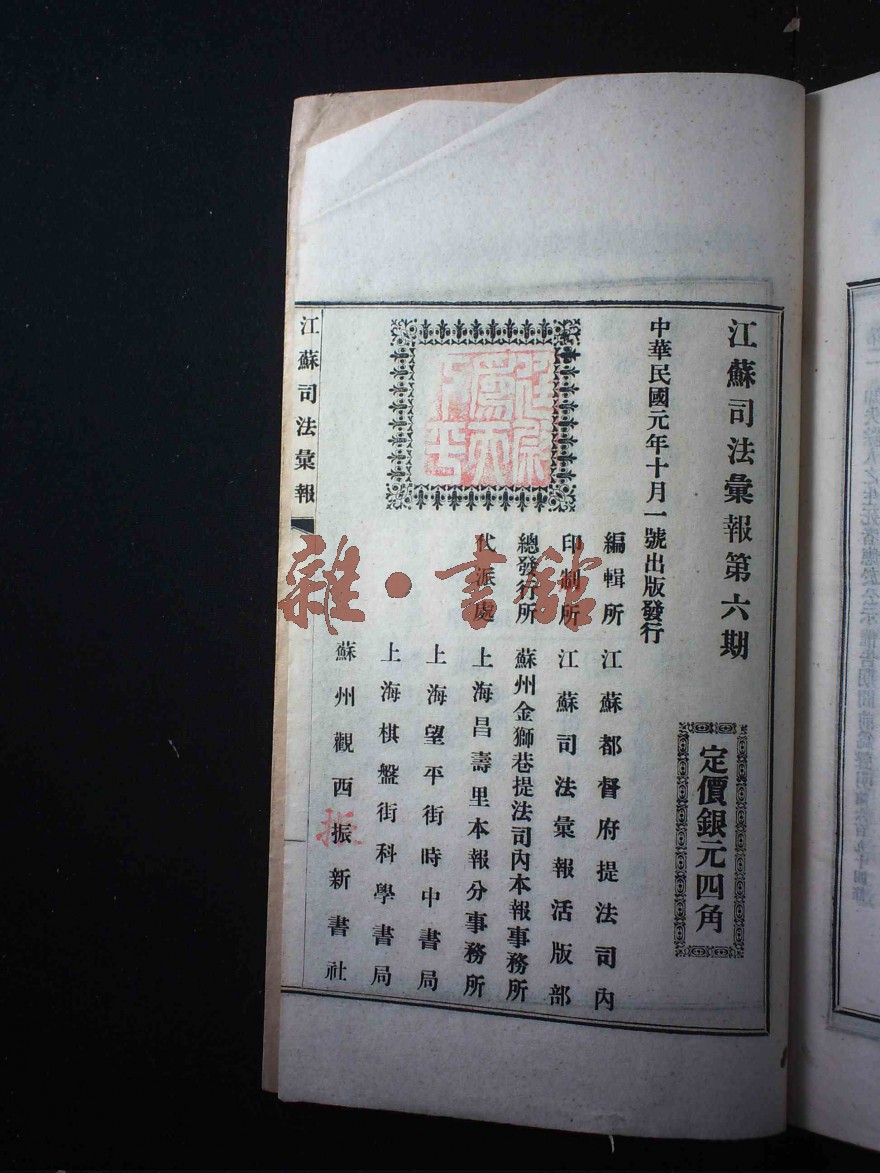 江蘇司法彙報第六期
定價銀元四角
中華民國元年十月一號出版發行
編輯所 江蘇都督府提法司內
印制所 江蘇司法彙報活版部
總發行所 蘇州金獅巷提法司內本報事務所
代派處 上海昌壽里本報分事務所
上海望平街時中書局
上海棋盤街科學書局
蘇州觀西振新書社
江蘇司法彙報
雜·書館